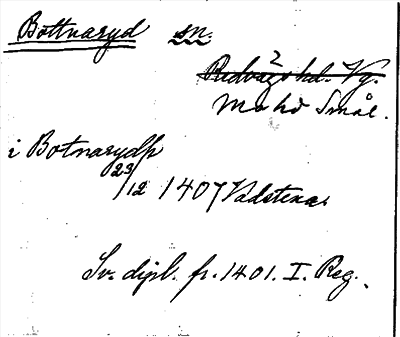 Bottnaryd sn.
2
Redvägs hd. Vg.
Mo hd Smål.
i Botnarydh
23/12 1407 Vadstena
Sv. dipl. fr. 1401. I. Reg.